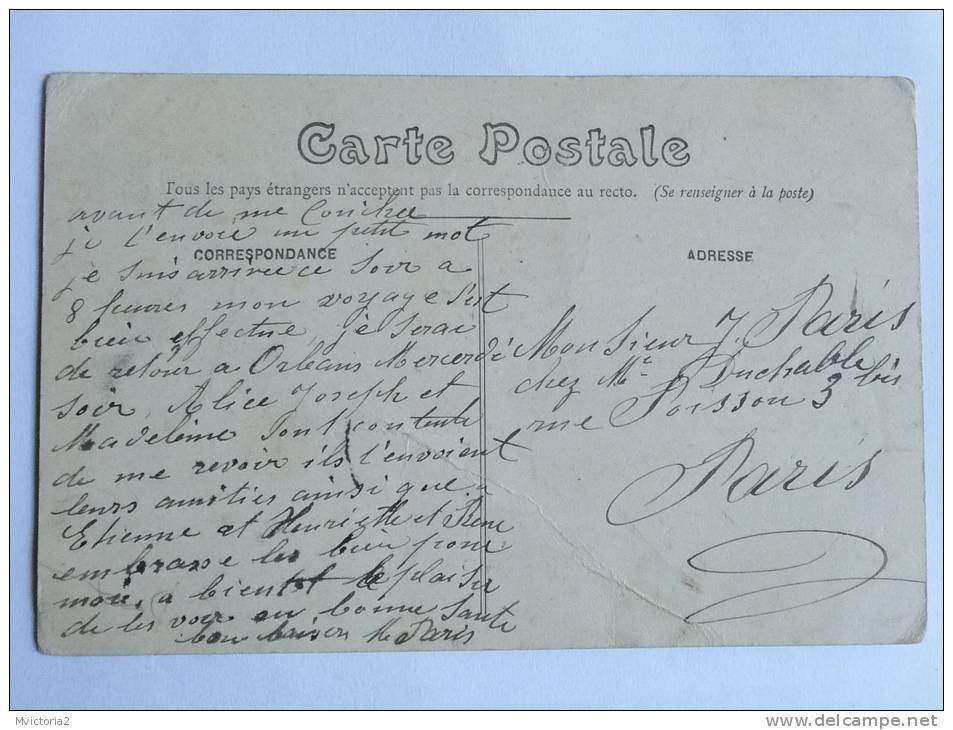 Carte Postale
Tous les pays étrangers n'acceptent pas la correspondance au recto. (Se renseigner à la poste)
CORRESPONDANCE
avant de me Couchee
je t'envoie un petit mot
je suis arrivee ce soir a
8 heures mon voyage s'est
bien effectue je serai
de retour a Orleans Mercerdi
soir, Alice Joseph et
Madeleine sont contente
de me revoir ils t'envoient
leurs amities ainsi que a
Etienne et Henriette et Rene
embrasse les bien pour
moi, a bientot le plaisir
de les voir en bonne sante
bon baisers M Paris
ADRESSE
Monsieur J. Paris
chez Mr Duchable
rue Poisson 3 bis
Paris
Mvictoria2
www.delcampe.net